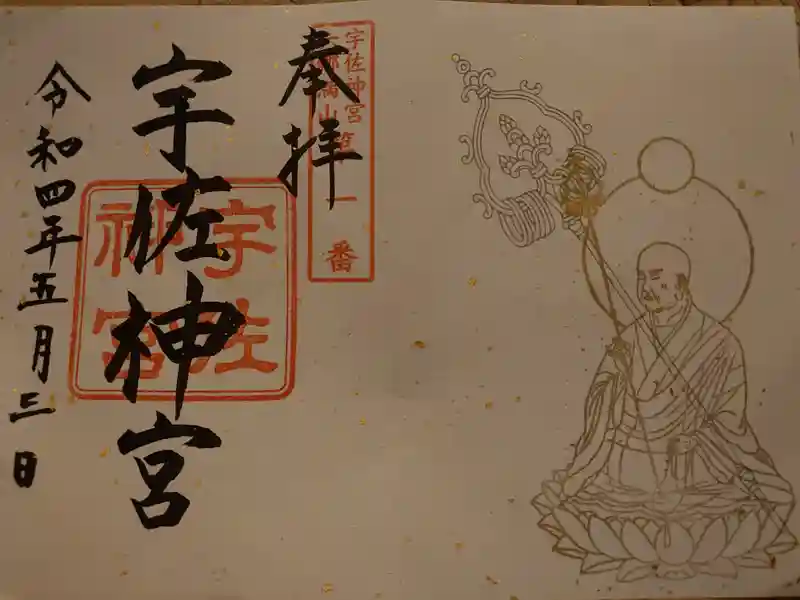 奉拝
宇佐神宮
六郷満山第一番
宇佐神宮
宇佐
神宮
令和四年五月三日